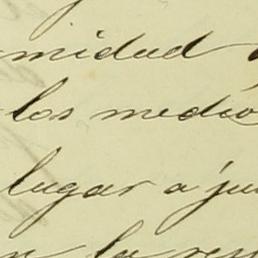 midad
los medio
lugar a ju
la